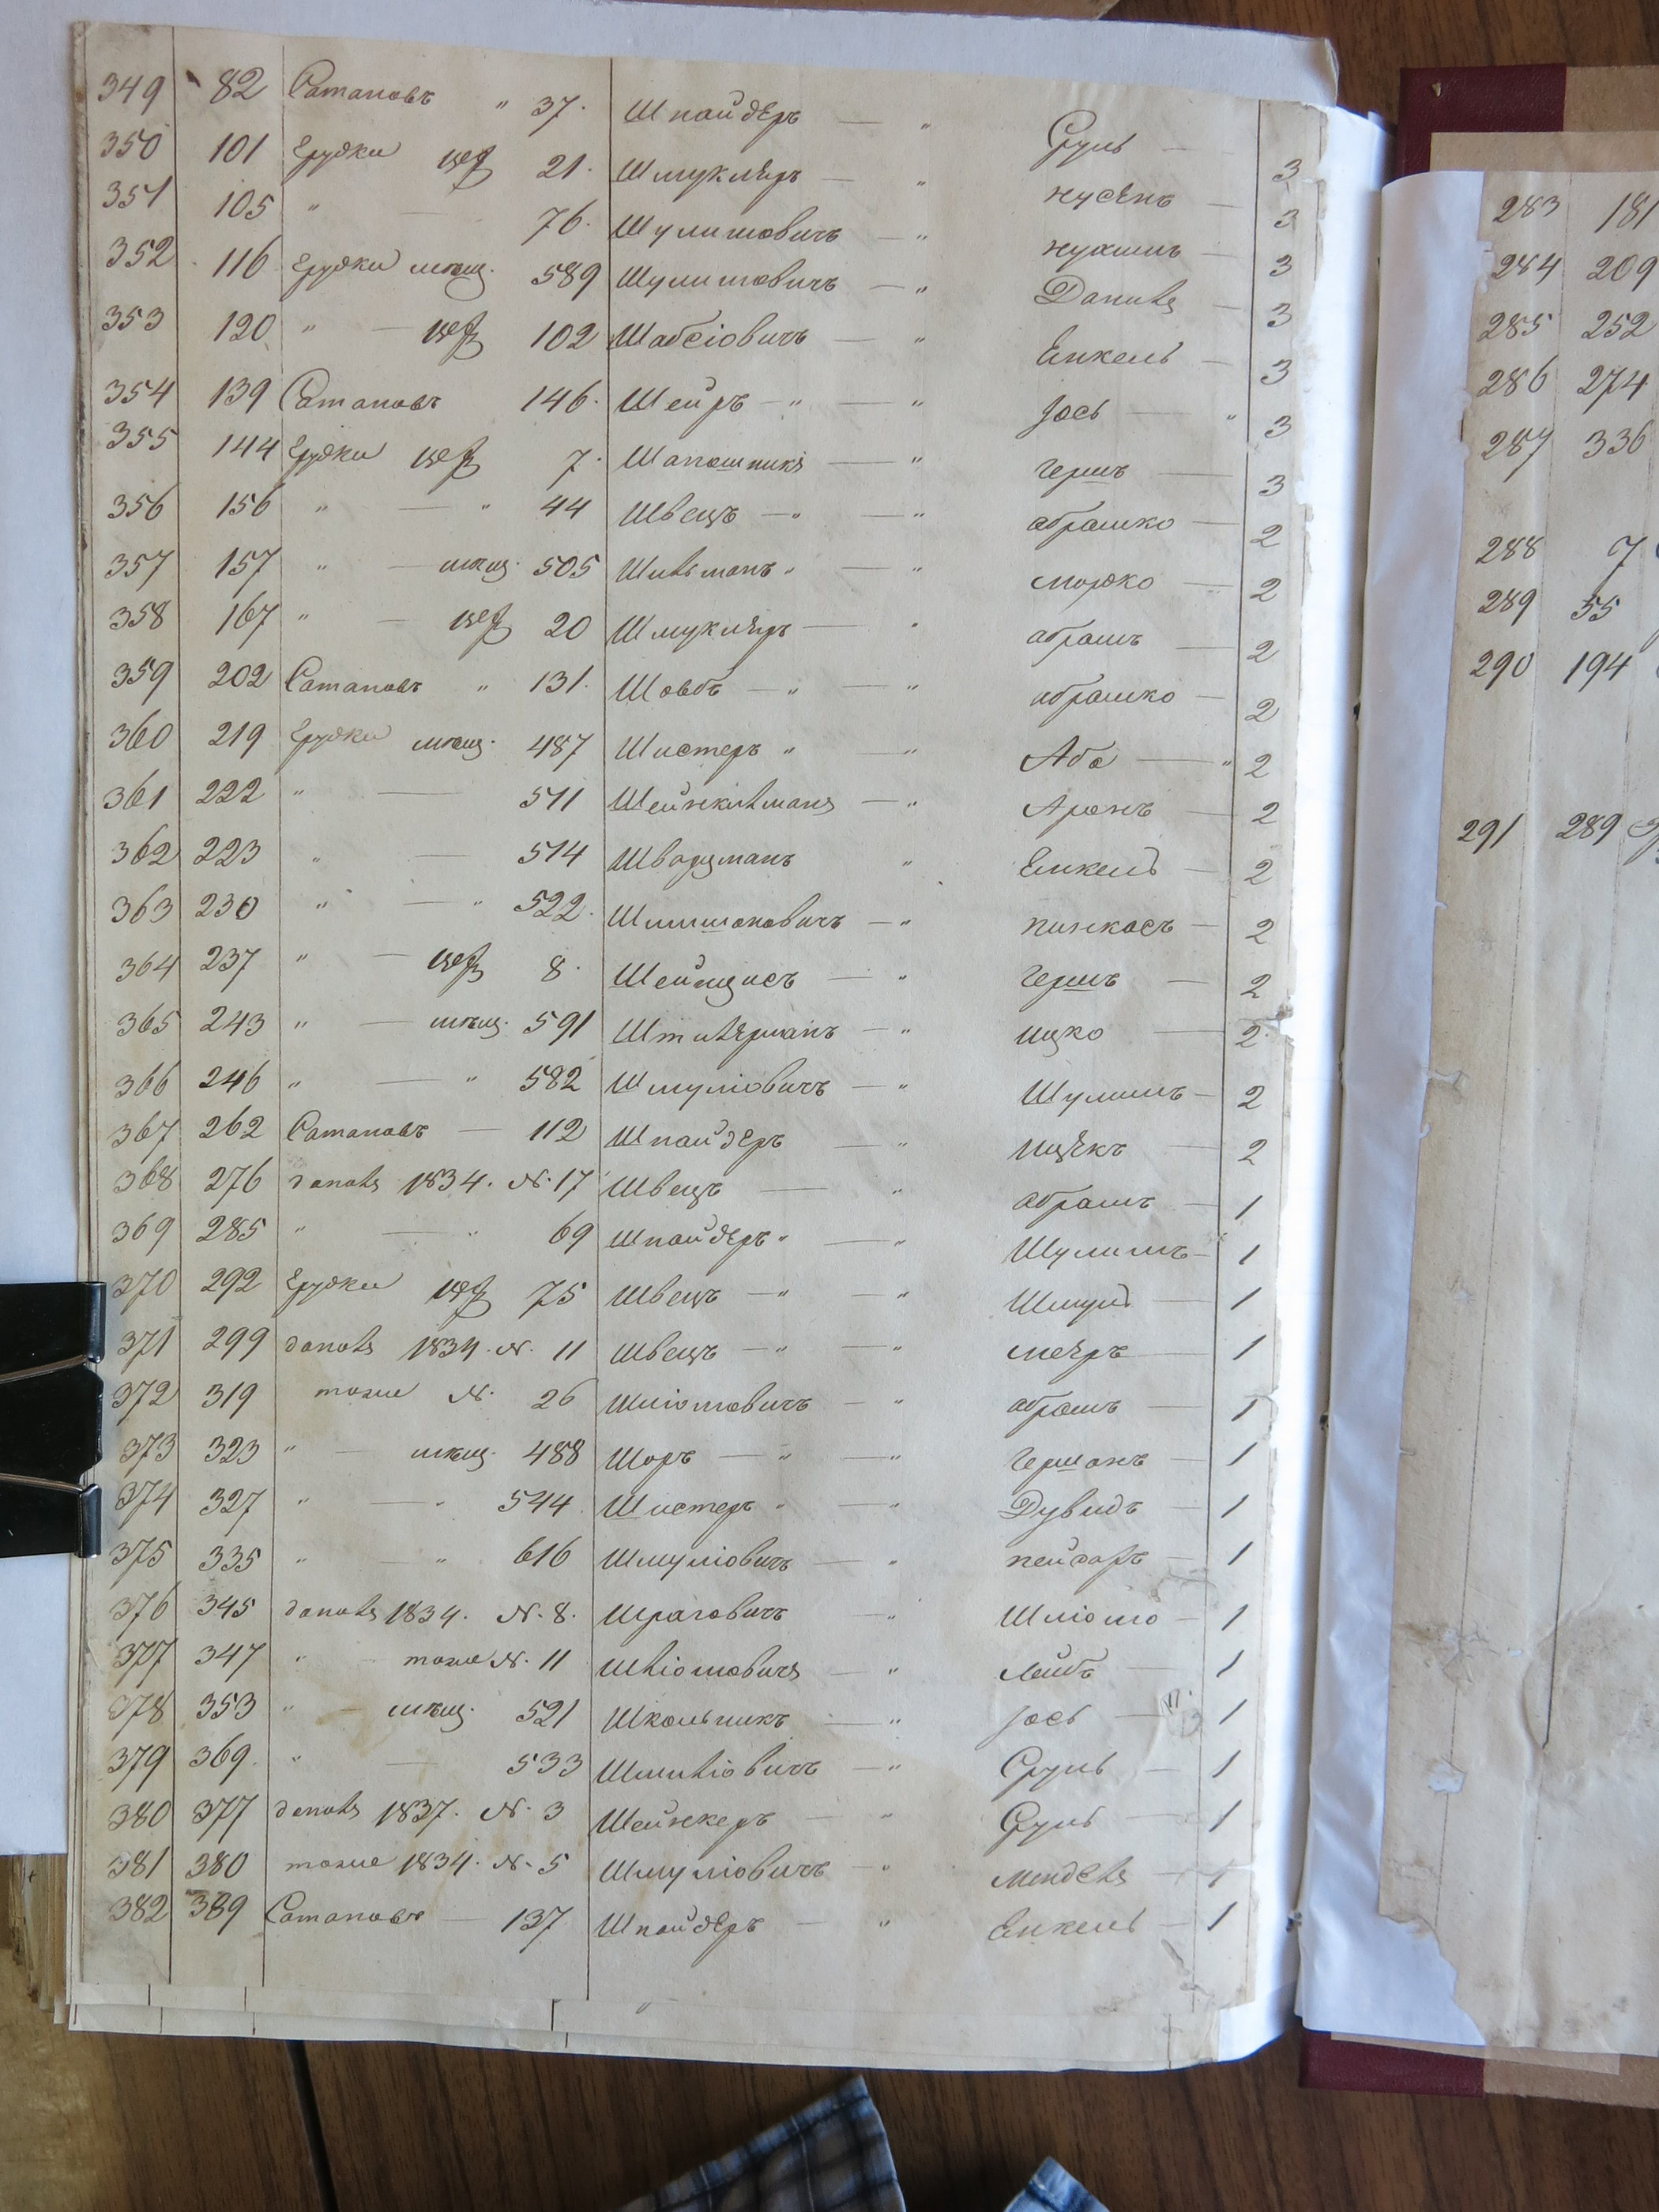 349 82 Сатановъ " 37. Шнайдеръ — " Сруль — 3
350 101 Грудки цех 21. Шмуклеръ — " Нусенъ — 3
351 105 " 76. Шулимовичъ — " Нухимъ — 3
352 116 Грудки мѣщ. 589 Шулимовичъ — " Данилъ — 3
353 120 " — цех 102 Шабсіовичъ — " Енкель — 3
354 139 Сатановъ 146. Шейръ — " — " Іось — " 3
355 144 Грудки цех 7. Шапошникъ — " Гершъ — 3
356 156 " — " 44 Швецъ — " — " Абрашко — 2
357 157 " — мѣщ. 505 Шильманъ " — " Мошко — 2
358 167 " — цех 20 Шмуклеръ — " Абрамъ — 2
359 202 Сатановъ " 131. — " — " Абрашко — 2
360 219 Грудки мѣщ. 487 Шистеръ " " Аба — " 2
361 222 " — 511 — " Аронъ — 2
362 223 " — 514 Шварцманъ " Енкель — 2
363 230 " — " 522. Шимшоновичъ — " Пинкасъ — 2
364 237 " — цех 8. — " Гершъ — 2
365 243 " — мѣщ. 591 Штильерманъ — " Ицко — 2
366 246 " — " 582 Шмуліовичъ — " Шулимъ — 2
367 262 Сатановъ — 112 Шнайдеръ — " Ицекъ — 2
368 276 дополъ 1834. N. 17 Швецъ — " Абрамъ — 1
369 285 " — " 69 Шнайдеръ " — " Шулимъ — 1
370 292 Грудки цех 75 Швецъ — " — " Шмуль — 1
371 299 дополъ 1834. N. 11 Швецъ — " — " Мееръ — 1
372 319 тоже N. 26 Шліомовичъ — " Абрамъ — 1
373 323 " — мѣщ. 488 Шоръ — " — " Гершонъ — 1
374 327 " — " 544 Шистеръ " — " Дувидъ — 1
375 335 " — " 616 Шмуліовичъ — " — 1
376 345 дополъ 1834. N. 8. Шраговичъ " Шліомо — 1
377 347 " — тоже N. 11 Шліомовичъ — " Лейбъ — 1
378 353 " — мѣщ. 521 Школьникъ — " Іось — 1
379 369. " — 533 Шмиліовичъ — " Сруль — 1
380 377 дополъ 1837. N. 3 Шейнкеръ — " Сруль — 1
381 380 тоже 1834. N. 5 Шмуліовичъ — " Мендель — 1
382 389 Сатановъ — 137 Шнайдеръ — " Енкель — 1
283 181
284 209
285 252
286 274
287 336
288 7
289 55
290 194
291 289